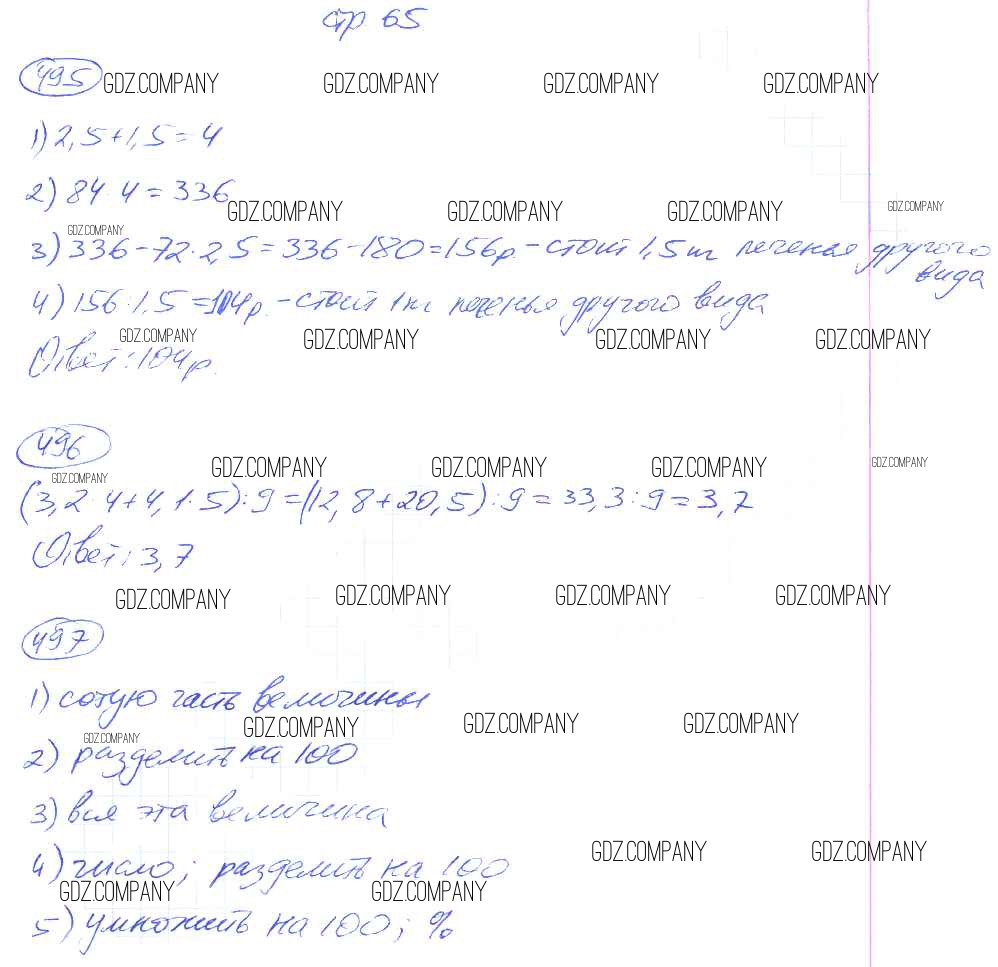 стр 65
495
GDZ.COMPANY GDZ.COMPANY GDZ.COMPANY GDZ.COMPANY
1) 2,5+1,5=4
2) 84·4=336
GDZ.COMPANY GDZ.COMPANY GDZ.COMPANY GDZ.COMPANY
GDZ.COMPANY
3) 336-72·2,5=336-180=156р.-стоит 1,5кг печенья другого
вида
4) 156:1,5=104р.-стоит 1кг печенья другого вида
GDZ.COMPANY GDZ.COMPANY GDZ.COMPANY GDZ.COMPANY
Ответ:104р.
496
GDZ.COMPANY GDZ.COMPANY GDZ.COMPANY GDZ.COMPANY
GDZ.COMPANY
(3,2·4+4,1·5):9=(12,8+20,5):9=33,3:9=3,7
Ответ:3,7
GDZ.COMPANY GDZ.COMPANY GDZ.COMPANY GDZ.COMPANY
497
1) сотую часть величины
GDZ.COMPANY GDZ.COMPANY GDZ.COMPANY
GDZ.COMPANY
2) разделить на 100
3) вся эта величина
GDZ.COMPANY GDZ.COMPANY
4) число; разделить на 100
GDZ.COMPANY GDZ.COMPANY
5) умножить на 100; %